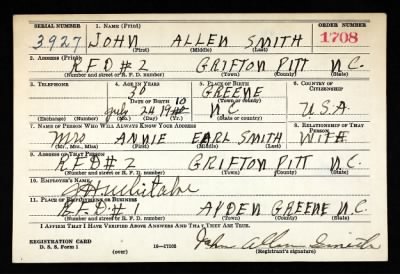 SERIAL NUMBER 1. NAME (Print) ORDER NUMBER
3927 JOHN ALLEN SMITH 1708
(First) (Middle) (Last)
2. ADDRESS (Print)
R.F.D #2 GRIFTON PITT N.C.
(Number and street or R. F. D. number) (Town) (County) (State)
3. TELEPHONE 4. AGE IN YEARS 5. PLACE OF BIRTH 6. COUNTRY OF CITIZENSHIP
30 GREENE
DATE OF BIRTH (Town or county)
July 24 1910 N.C. U.S.A
(Exchange) (Number) (Mo.) (Day) (Yr.) (State or country)
7. NAME OF PERSON WHO WILL ALWAYS KNOW YOUR ADDRESS 8. RELATIONSHIP OF THAT PERSON
MRS ANNIE EARL SMITH WIFE
(Mr., Mrs., Miss) (First) (Middle) (Last)
9. ADDRESS OF THAT PERSON
R.F.D #2 GRIFTON PITT N.C.
(Number and street or R. F. D. number) (Town) (County) (State)
10. EMPLOYER'S NAME
11. PLACE OF EMPLOYMENT OR BUSINESS
R.F.D #1 AYDEN GREENE N.C.
(Number and street or R. F. D. number) (Town) (County) (State)
I AFFIRM THAT I HAVE VERIFIED ABOVE ANSWERS AND THAT THEY ARE TRUE.
REGISTRATION CARD
D. S. S. Form 1 16—17105 John Allen Smith
(over) (Registrant's signature)